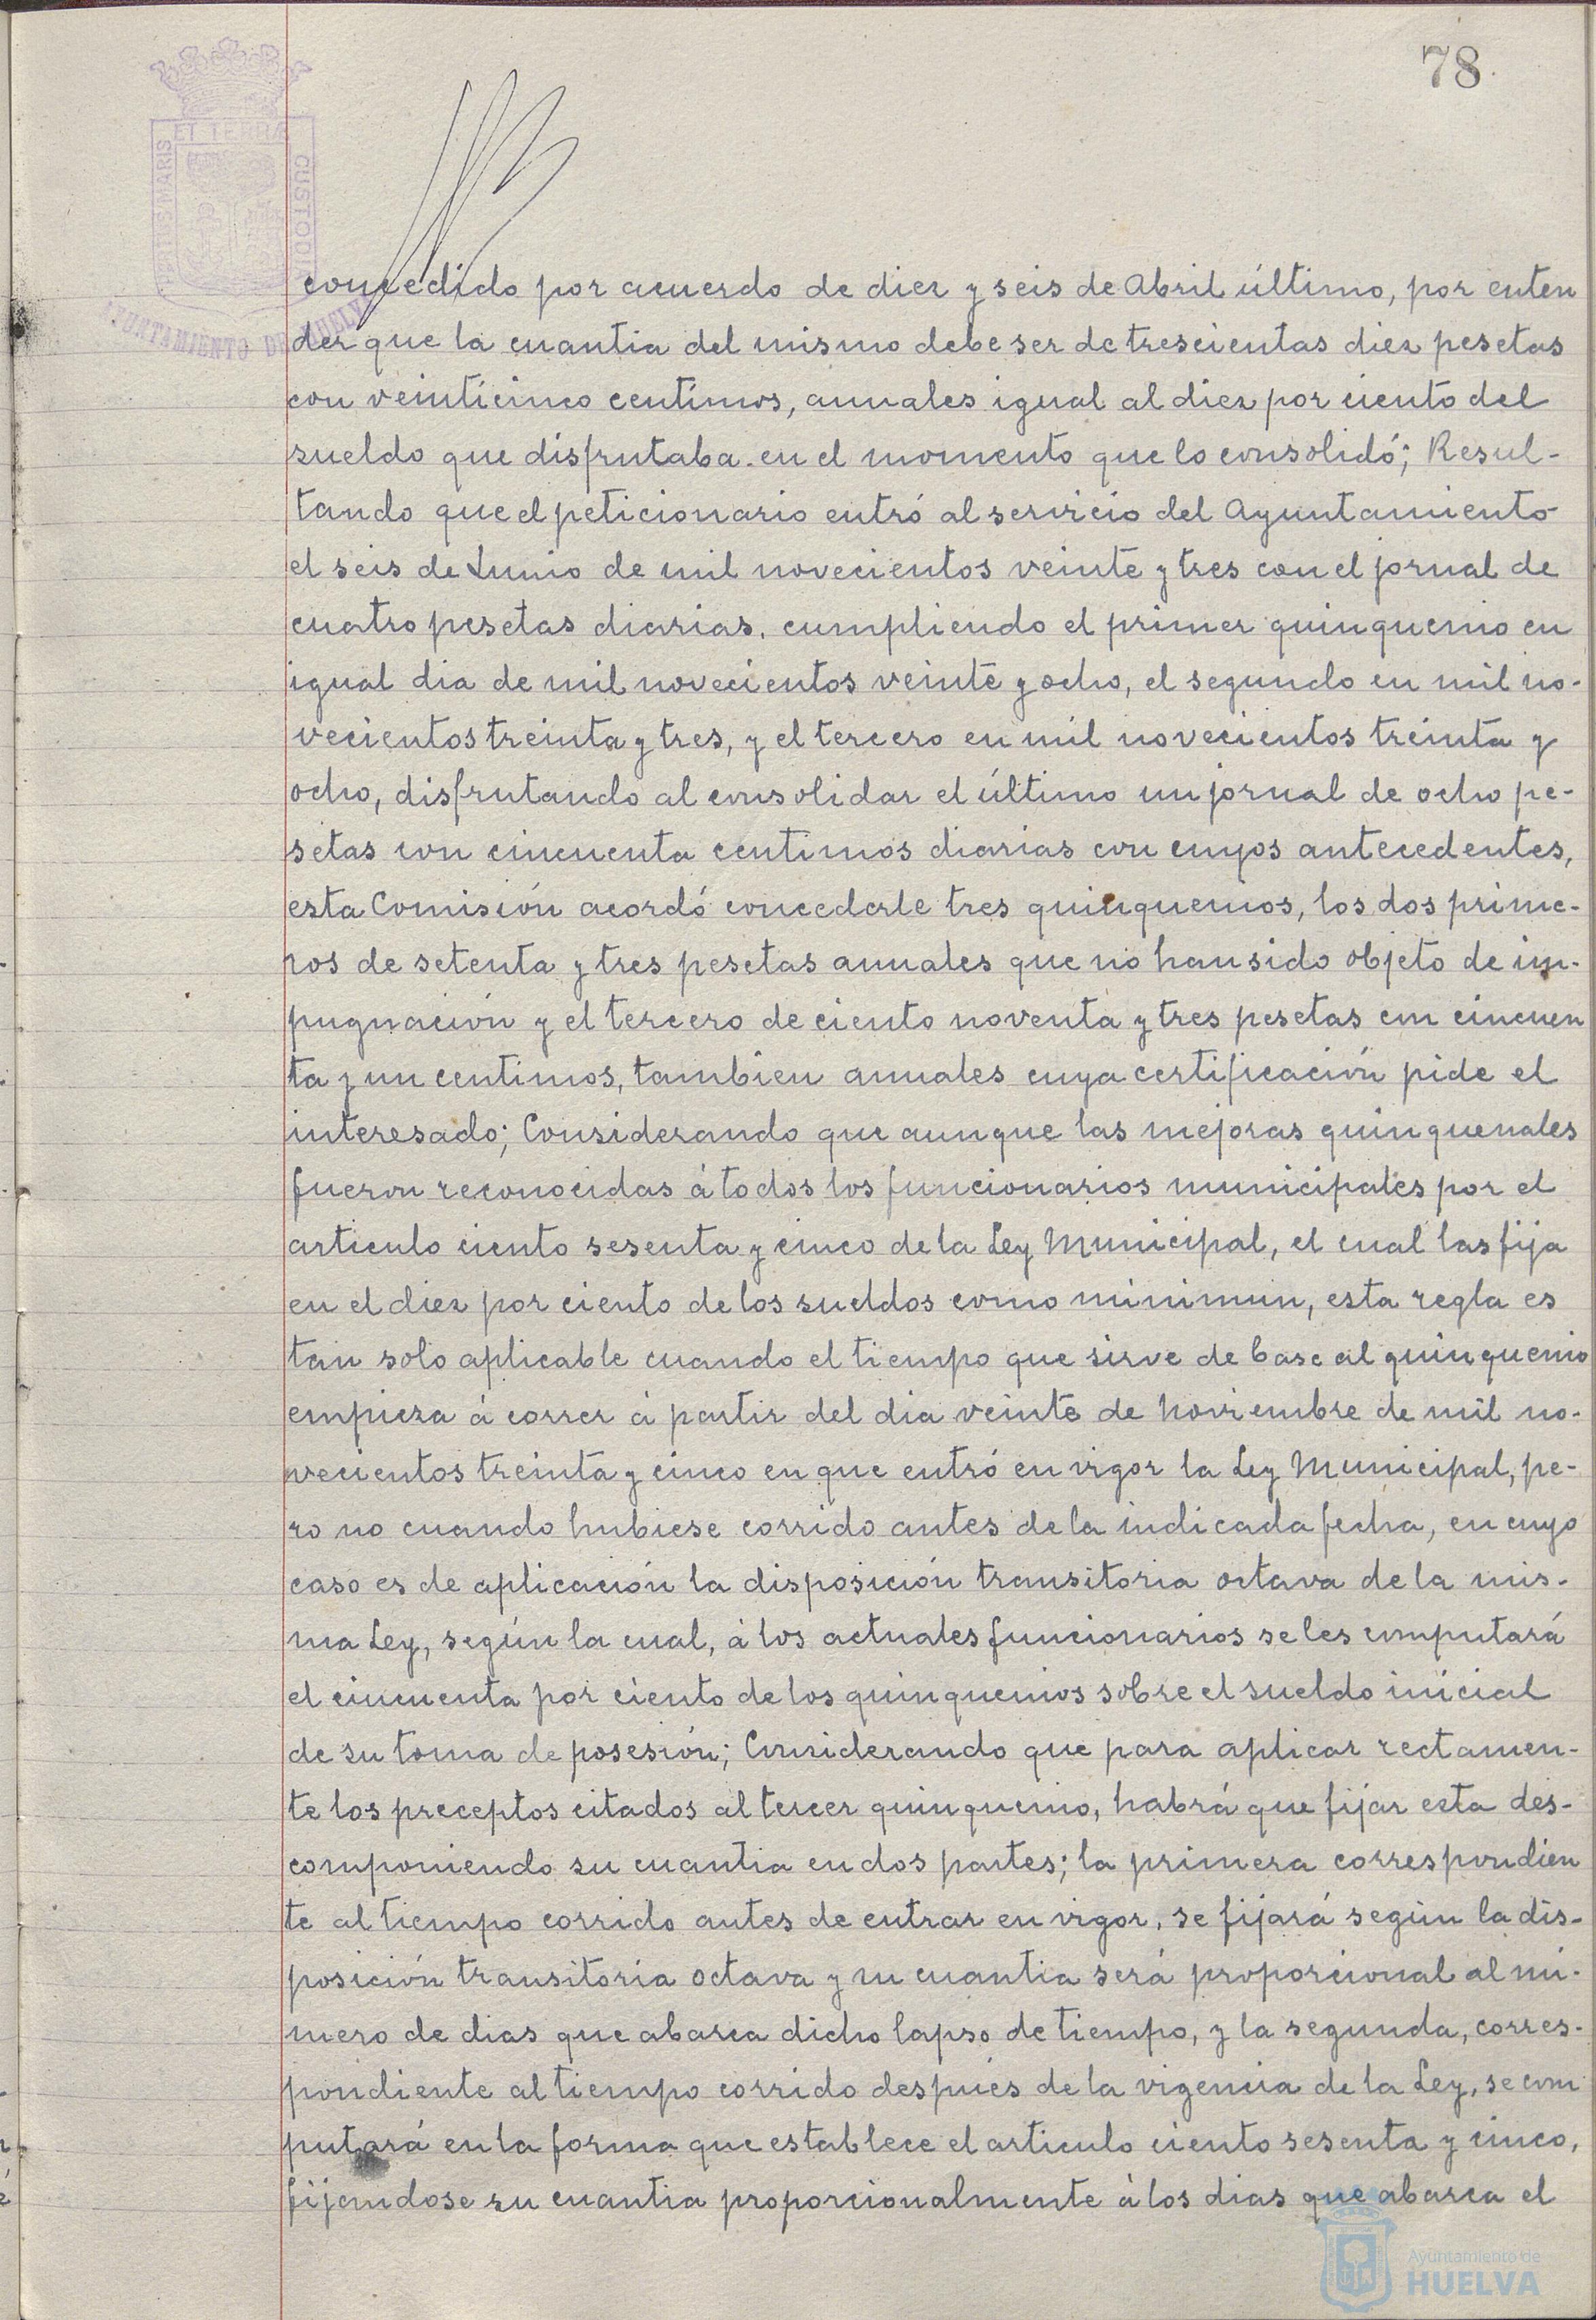 78
PORTUS MARIS
ET TERRA
CUSTODI
AYUNTAMIENTO DE HUELVA
concedido por acuerdo de diez y seis de Abril último, por enten
der que la cuantia del mismo debe ser de trescientas diez pesetas
con veinticinco centimos, anuales igual al diez por ciento del
sueldo que disfrutaba en el momento que lo consolidó; Resul-
tando que el peticionario entró al servicio del Ayuntamiento
el seis de Junio de mil novecientos veinte y tres con el jornal de
cuatro pesetas diarias, cumpliendo el primer quinquenio en
igual dia de mil novecientos veinte y ocho, el segundo en mil no-
vecientos treinta y tres, y el tercero en mil novecientos treinta y
ocho, disfrutando al consolidar el último un jornal de ocho pe-
setas con cincuenta centimos diarias con cuyos antecedentes,
esta Comisión acordó concederle tres quinquenios, los dos prime-
ros de setenta y tres pesetas anuales que no han sido objeto de im-
pugnación y el tercero de ciento noventa y tres pesetas con cincuen
ta y un centimos, tambien anuales cuya certificación pide el
interesado; Considerando que aunque las mejoras quinquenales
fueron reconocidas á todos los funcionarios municipales por el
articulo ciento sesenta y cinco de la Ley Municipal, el cual las fija
en el diez por ciento de los sueldos como minimun, esta regla es
tan solo aplicable cuando el tiempo que sirve de base al quinquenio
empieza á correr á partir del dia veinte de Noviembre de mil no-
vecientos treinta y cinco en que entró en vigor la Ley Municipal, pe-
ro no cuando hubiese corrido antes de la indicada fecha, en cuyo
caso es de aplicación la disposición transitoria octava de la mis-
ma Ley, según la cual, á los actuales funcionarios se les computará
el cincuenta por ciento de los quinquenios sobre el sueldo inicial
de su toma de posesión; Considerando que para aplicar rectamen-
te los preceptos citados al tercer quinquenio, habrá que fijar esta des-
componiendo su cuantia en dos partes; la primera correspondien
te al tiempo corrido antes de entrar en vigor, se fijará según la dis-
posición transitoria octava y su cuantia será proporcional al nú-
mero de dias que abarca dicho lapso de tiempo, y la segunda, corres-
pondiente al tiempo corrido después de la vigencia de la Ley, se com
putará en la forma que establece el articulo ciento sesenta y cinco,
fijandose su cuantia proporcionalmente á los dias que abarca el
Ayuntamiento de
HUELVA